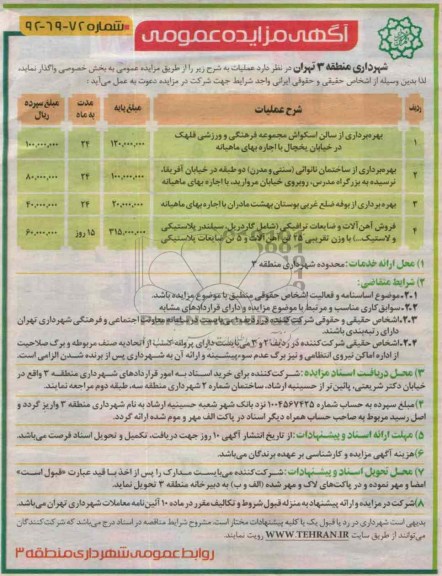 آگهی مزایده عمومی
شماره ۷۲-۶۹-۹۲
شهرداری منطقه ۳ تهران در نظر دارد عملیات به شرح زیر را از طریق مزایده عمومی به بخش خصوصی واگذار نماید،
لذا بدین وسیله از اشخاص حقیقی و حقوقی ایرانی واجد شرایط جهت شرکت در مزایده دعوت به عمل می‌آید:
ردیف شرح عملیات مبلغ پایه مدت به ماه مبلغ سپرده ریال
۱ بهره‌برداری از سالن اسکواش مجموعه فرهنگی و ورزشی قلهک در خیابان یخچال با اجاره بهای ماهیانه ۱۲۰,۰۰۰,۰۰۰ ۲۴ ۱۰۰,۰۰۰,۰۰۰
۲ بهره‌برداری از ساختمان نانوائی (سنتی و مدرن) دو طبقه در خیابان آفریقا، نرسیده به بزرگراه مدرس، روبروی خیابان مروارید، با اجاره بهای ماهیانه ۱۰۰,۰۰۰,۰۰۰ ۲۴ ۸۰,۰۰۰,۰۰۰
۳ بهره‌برداری از بوفه ضلع غربی بوستان بهشت مادران با اجاره بهای ماهیانه ۲۰,۰۰۰,۰۰۰ ۲۴ ۴۰,۰۰۰,۰۰۰
۴ فروش آهن آلات و ضایعات ترافیکی (شامل گاردریل، سیلندر پلاستیکی و لاستیک...) با وزن تقریبی ۲۵ تن آهن آلات و ۵ تن ضایعات پلاستیکی ۳۱۵,۰۰۰,۰۰۰ ۱۵ روز ۶۰,۰۰۰,۰۰۰
۱) محل ارائه خدمات: محدوده شهرداری منطقه ۳
۲) شرایط متقاضی:
۲-۱- موضوع اساسنامه و فعالیت اشخاص حقوقی منطبق با موضوع مزایده باشد.
۲-۲- سوابق کاری مناسب و مرتبط با موضوع مزایده و دارای قراردادهای مشابه
۲-۳- اشخاص حقیقی و حقوقی شرکت کننده در ردیف ۱ می‌بایست در سامانه معاونت اجتماعی و فرهنگی شهرداری تهران
دارای رتبه‌بندی باشند.
۲-۴- اشخاص حقیقی شرکت‌کننده در ردیف ۲ و ۳ می‌بایست دارای پروانه کسب از اتحادیه صنف مربوطه و برگ صلاحیت
از اداره اماکن نیروی انتظامی و نیز برگ عدم سوءپیشینه و ارائه آن به شهرداری پس از برنده شدن الزامی است.
۳) محل دریافت اسناد مزایده: شرکت‌کننده برای خرید اسناد به امور قراردادهای شهرداری منطقه ۳ واقع در
خیابان دکتر شریعتی، پائین‌تر از حسینیه ارشاد، ساختمان شماره ۲ شهرداری منطقه سه، طبقه دوم مراجعه نمایند.
۴) مبلغ سپرده به حساب شماره ۱۰۰۴۵۶۷۴۲۵ نزد بانک شهر شعبه حسینیه ارشاد به نام شهرداری منطقه ۳ واریز گردد و
اصل رسید مربوط به صاحب حساب همراه دیگر اسناد در پاکت الف مهر و موم شده ارائه گردد.
۵) مهلت ارائه اسناد و پیشنهادات: از تاریخ انتشار آگهی ۱۰ روز جهت دریافت، تکمیل و تحویل اسناد فرصت می‌باشد.
۶) هزینه آگهی مزایده و کارشناسی بر عهده برندگان می‌باشد.
۷) محل تحویل اسناد و پیشنهادات: شرکت‌کننده می‌بایست مدارک را پس از اخذ با قید عبارت «قبول است»
امضا و مهر نموده و در پاکت‌های لاک و مهر شده (الف و ب) به دبیرخانه منطقه ۳ تحویل نماید.
۸) شرکت در مزایده و ارائه پیشنهاد به منزله قبول شروط و تکالیف مقرر در ماده ۱۰ آئین‌نامه معاملات شهرداری تهران می‌باشد.
بدیهی است شهرداری در رد یا قبول یک یا کلیه پیشنهادات مختار است. مشروح شرایط مناقصه در اسناد درج می‌باشد که شرکت‌کنندگان
می‌توانند از طریق سایت WWW.TEHRAN.IR رویت نمایند.
روابط عمومی شهرداری منطقه ۳